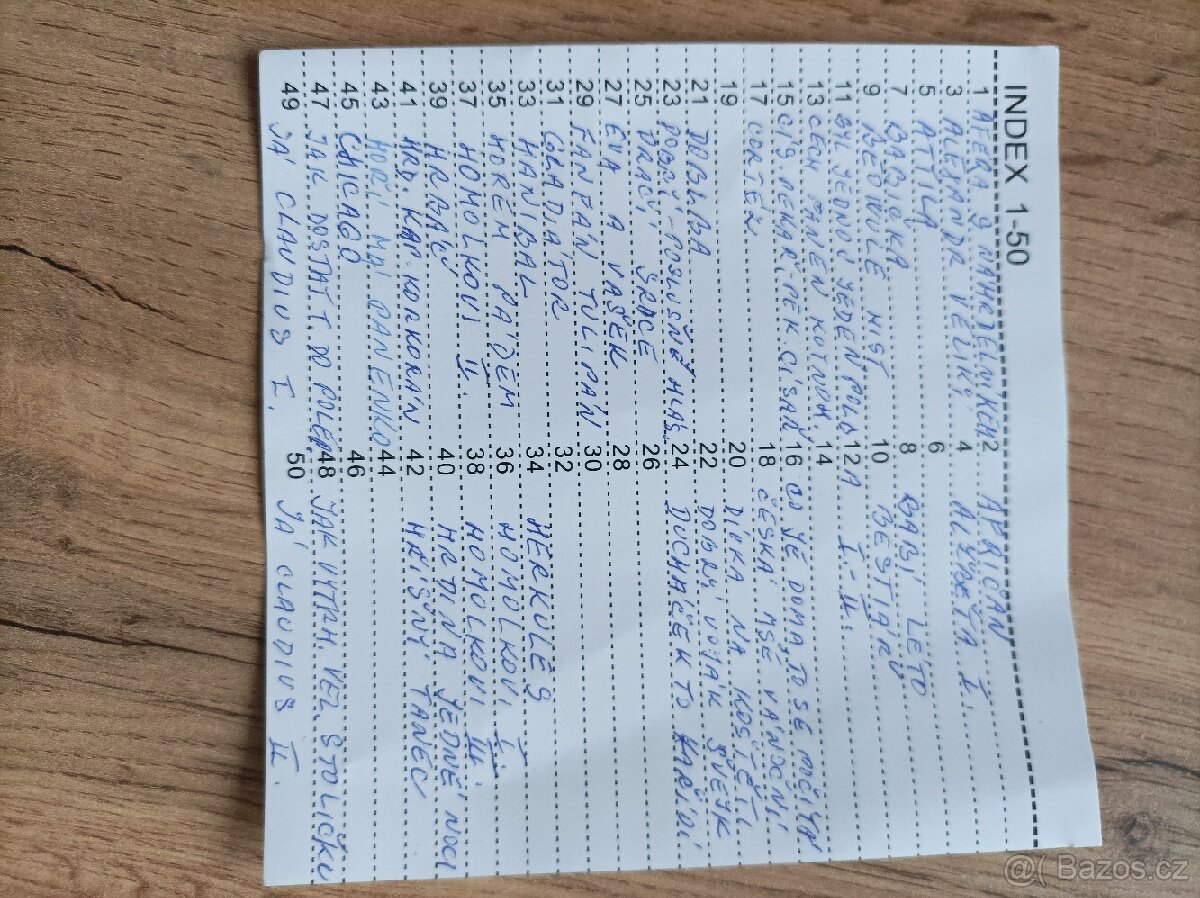 INDEX 1-50
1 AFERA S NAHRDELNIKEM 2 AFRIČAN
3 ALEXANDR VELIKÝ 4 ALŽBĚTA I.
5 ATTILA 6
7 BABIČKA 8 BABÍ LÉTO
9 BEOWULF 10 BESTIÁŘ
11 BYL JEDNOU JEDEN POLDA 12 I. - II.
13 ČLEN PANEN KOTNOV. 14
15 CÍS. PEKAŘ, PEK. CÍSAŘ 16 CO JE DOMA, TO SE POČÍTÁ
17 CORTEZ 18 ČESKÁ MŠE VÁNOČNÍ
19 20 DÍVKA NA KOŠTĚTI
21 DOBLBA 22 DOBRÝ VOJÁK ŠVEJK
23 POSLUŠNĚ HLÁS. 24 DUCHÁČEK TO ZAŘÍDÍ
25 DRAČÍ SRDCE 26
27 EVA A VAŠEK 28
29 FANFÁN TULIPÁN 30
31 GLADIÁTOR 32
33 HANIBAL 34 HERKULES
35 HOREM PÁDEM 36 HOMOLKOVI I.
37 HOMOLKOVI II. 38 HOMOLKOVI III.
39 HRBÁČ 40 HRDINA JEDNÉ NOCI
41 HRD. KAP. KORKORÁN 42 HŘÍŠNÝ TANEC
43 HOŘÍ MÁ PANENKO 44
45 CHICAGO 46
47 JAK DOSTAT T. DO POLEP. 48 JAK VYTRH. VEL. STOLIČKU
49 JÁ CLAUDIUS I. 50 JÁ CLAUDIUS II.
@( Bazos.cz